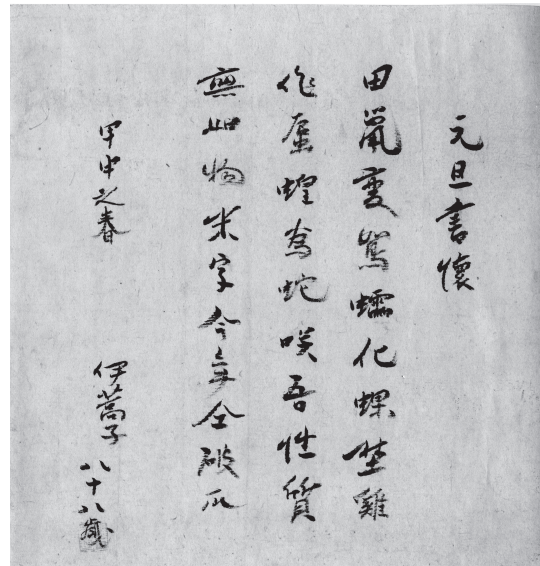 元旦書懷
田鼠変鴽蠕化蝶埜雞
作蜃蝗為蛇咲吾性質
無如物米字今年全破瓜
甲申之春
伊蒿子
八十八歳